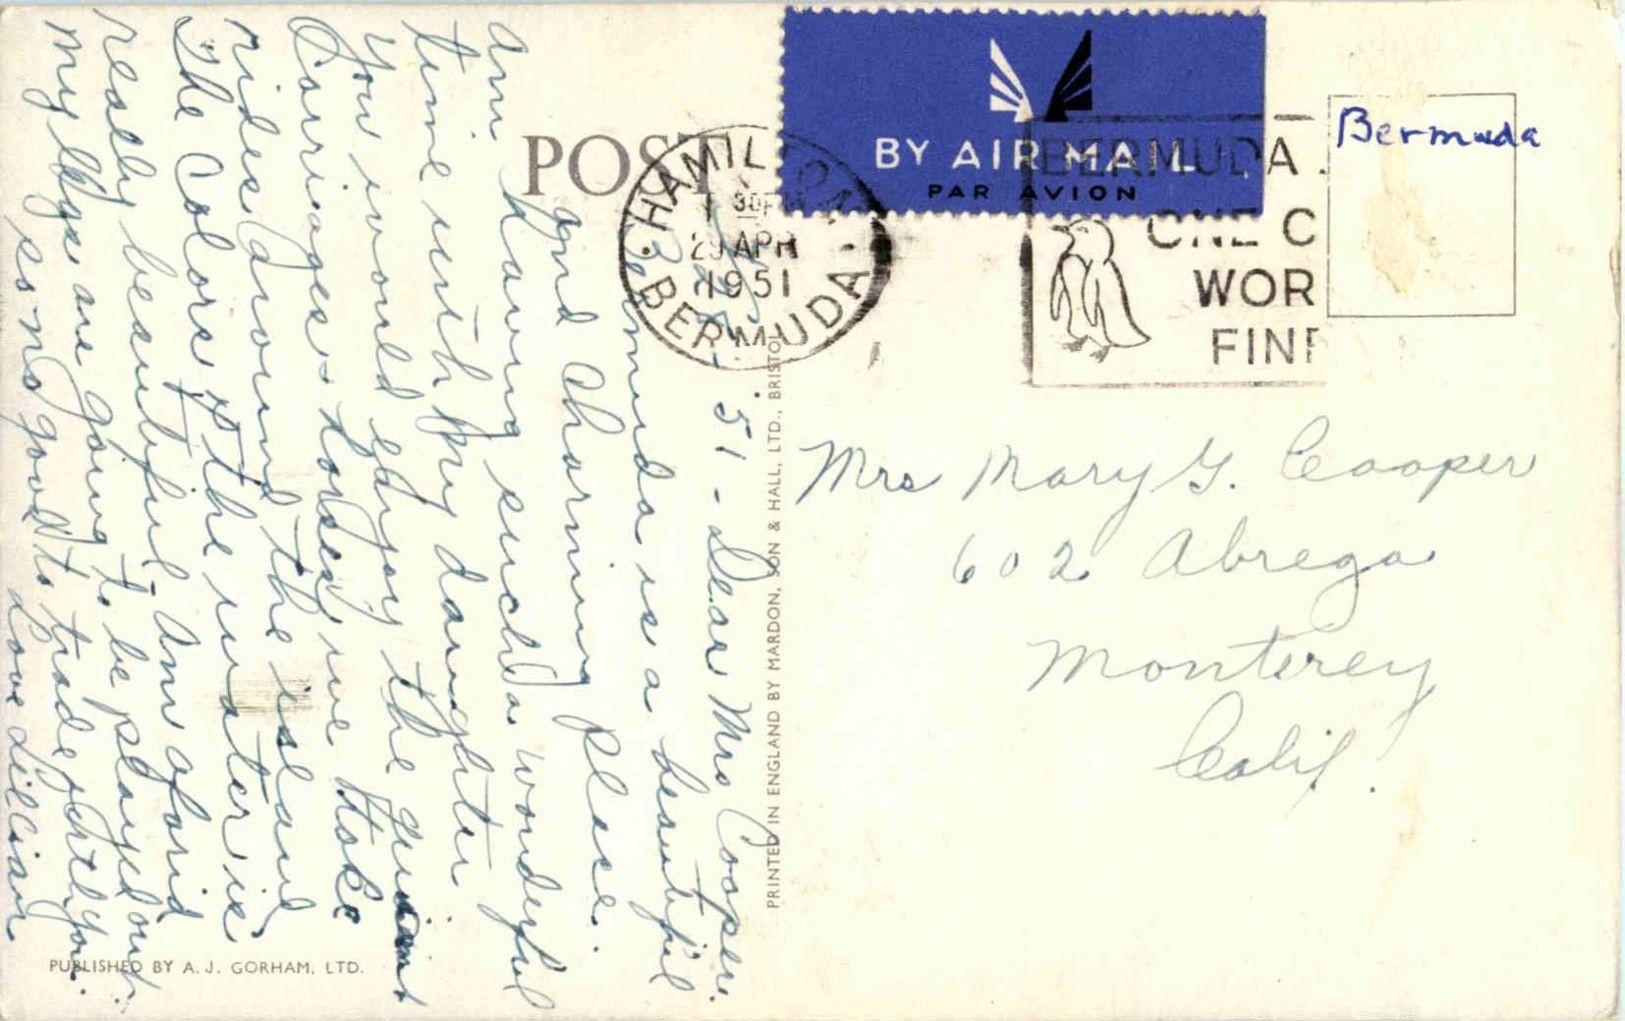 POST
BY AIR MAIL
PAR AVION
HAMILTON
30 PM
29 APR
1951
BERMUDA
BERMUDA
ONE C
WOR
FIN
Bermuda
51 - Dear Mrs Cooper.
Bermuda is a beautiful
and charming place.
am having such a wonderful
time with my daughter.
You would enjoy the quaint
Carriages + horses we take
rides around the island
The colors of the water is
really beautiful. Am afraid
my legs are going to be played out.
so no good to trade with you.
Love Lillian
PRINTED IN ENGLAND BY MARDON, SON & HALL, LTD., BRISTOL
PUBLISHED BY A. J. GORHAM, LTD.
Mrs Mary G. Cooper
602 Abrego
Monterey
Calif.